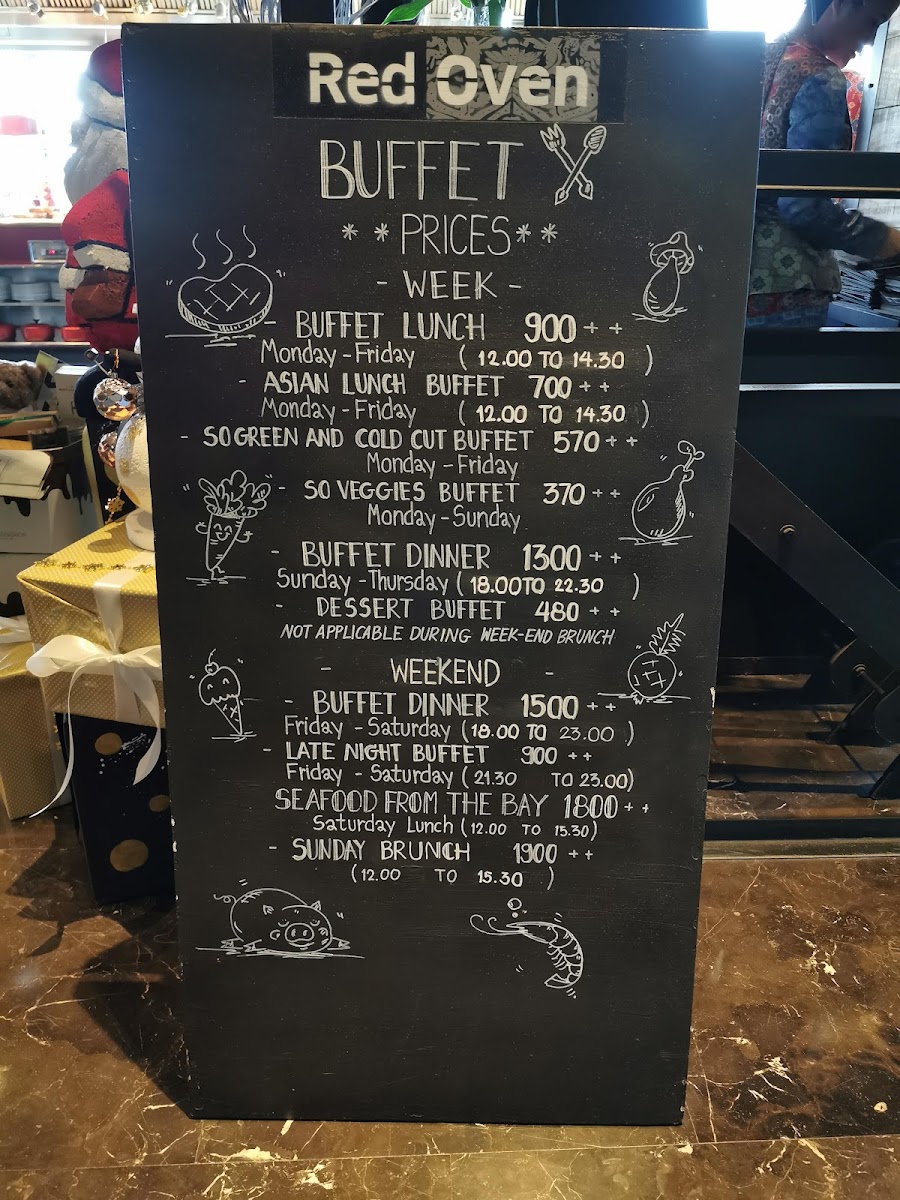 Red Oven
BUFFET
* * PRICES * *
- WEEK -
- BUFFET LUNCH 900++
Monday - Friday (12.00 TO 14.30)
- ASIAN LUNCH BUFFET 700++
Monday - Friday (12.00 TO 14.30)
- SO GREEN AND COLD CUT BUFFET 570++
Monday - Friday
- SO VEGGIES BUFFET 370++
Monday - Sunday
- BUFFET DINNER 1300++
Sunday - Thursday (18.00 TO 22.30)
- DESSERT BUFFET 480++
NOT APPLICABLE DURING WEEK-END BRUNCH
- WEEKEND -
- BUFFET DINNER 1500++
Friday - Saturday (18.00 TO 23.00)
- LATE NIGHT BUFFET 900++
Friday - Saturday (21.30 TO 23.00)
SEAFOOD FROM THE BAY 1800++
Saturday Lunch (12.00 TO 15.30)
- SUNDAY BRUNCH 1900++
(12.00 TO 15.30)